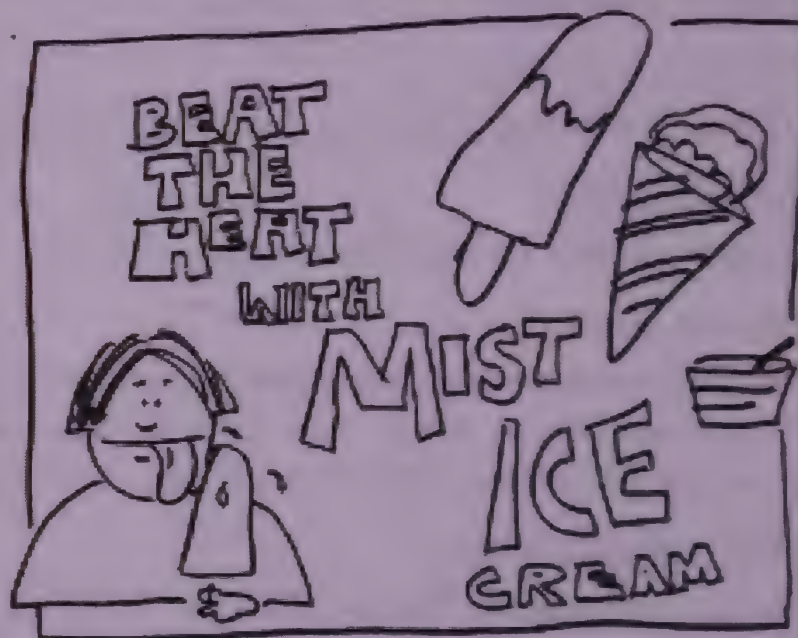 BEAT
THE
HEAT
WITH
MIST
ICE
CREAM